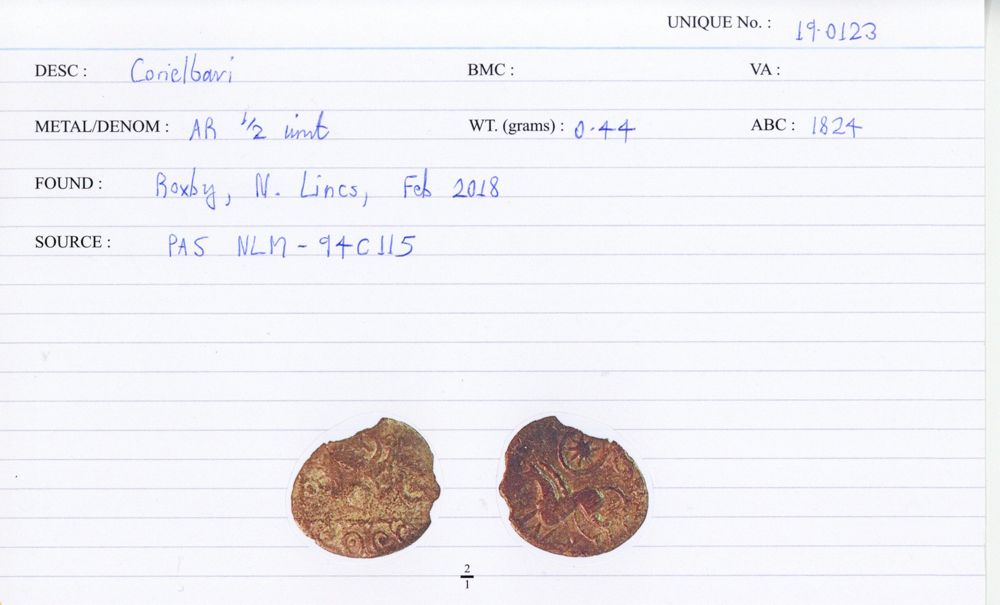 UNIQUE No. : 19.0123
DESC : Corielbavi BMC : VA :
METAL/DENOM : AR 1/2 unit WT. (grams) : 0.44 ABC : 1824
FOUND : Roxby, N. Lincs, Feb 2018
SOURCE : PAS NLM-94C115
2
1